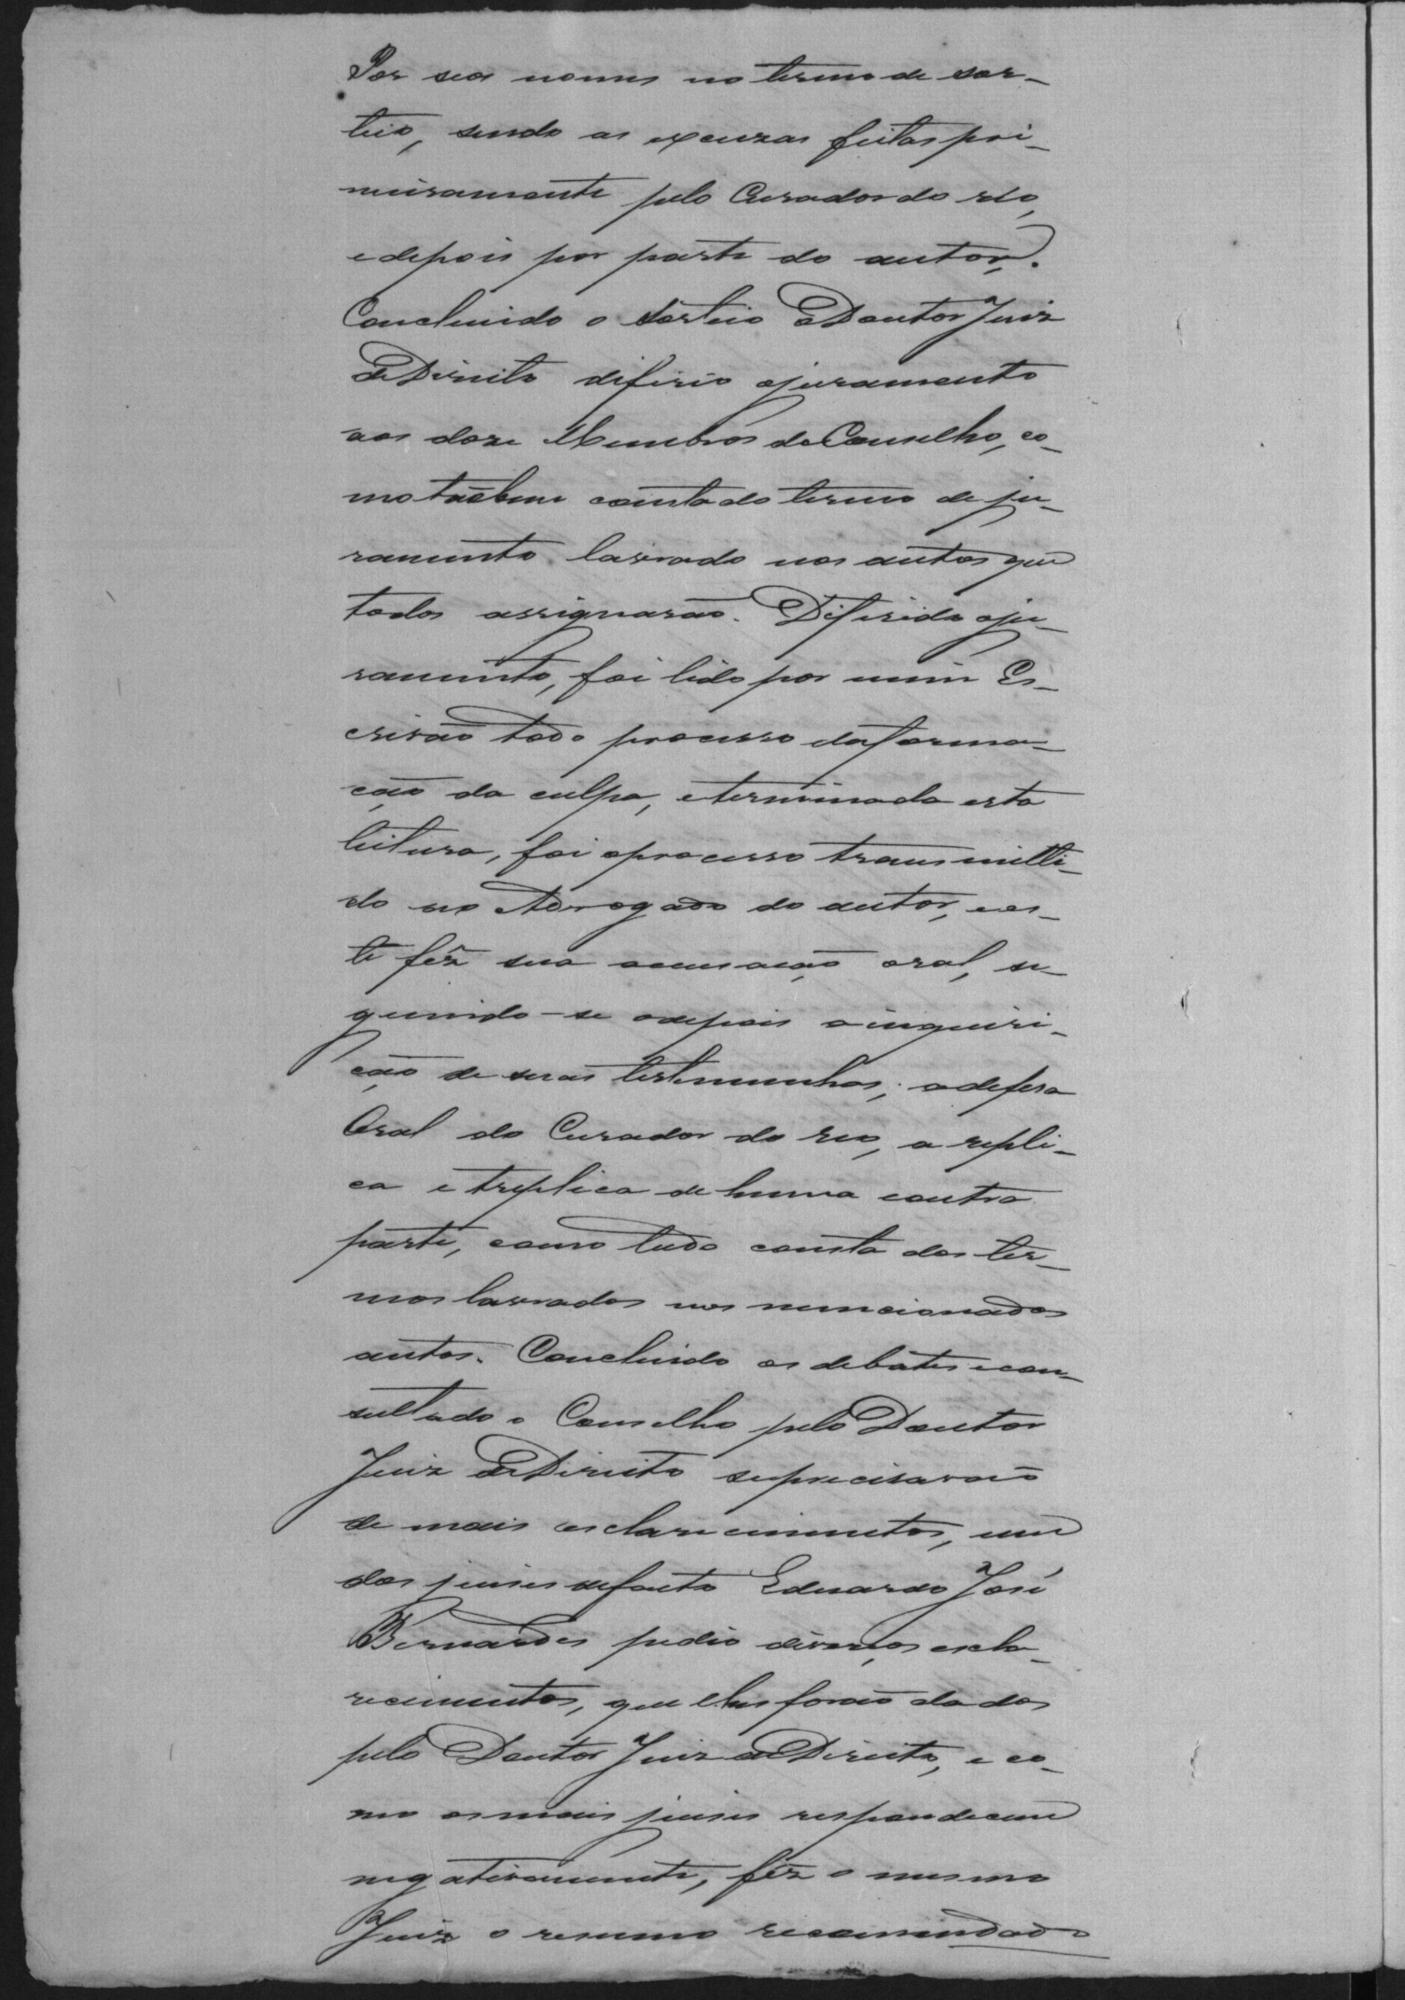 Por seos nomes no termo de sor-
teio, sendo as excuzas feitas pri-
meiramente pelo Curador do réo,
e depois por parte do autor.
Concluido o sorteio o Doutor Juiz
de Direito diferio o juramento
aos doze Membros do Conselho, co-
mo tãobem consta do termo de ju-
ramento lavrado nos autos que
todos assignarão. Diferido o ju-
ramento, foi lido por mim Es-
crivão todo processo da forma-
ção da culpa, e terminada esta
leitura, foi o processo transmitti-
do ao Advogado do autor, e es-
te fêz sua accusação oral, se-
guindo-se adepois a inquiri-
ção de suas testemunhas, a defesa
Oral do Curador do reo, a repli-
ca e treplica de huma e outra
parte, como tudo consta dos ter-
mos lavrados nos mencionados
autos. Concluido os debates e con-
sultado o Conselho pelo Doutor
Juiz de Direito se precisavão
de mais esclarecimentos, um
dos juises de facto Eduardo José
Bernardes pedio diversos escla-
recimentos, que lhes forão dados
pelo Doutor Juiz de Direito, e co-
mo os mais juises respondecem
negativamente, fêz o mesmo
Juiz o resumo recomendado